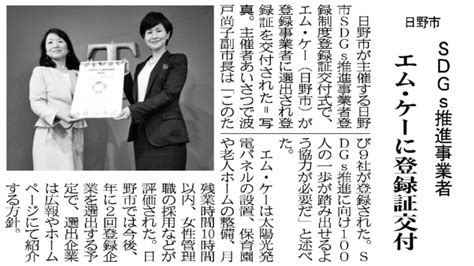 日野市
SDGs推進事業者
エム・ケーに登録証交付
日野市が主催する日野
市SDGs推進事業者登
録制度登録証交付式で、
エム・ケー（日野市）が
登録事業者に選出され登
録証を交付された＝写
真。主催者あいさつで波
戸尚子副市長は「このた
び9社が登録された。S
DGs推進に向け100
人の一歩が踏み出せるよ
う協力が必要だ」と述べ
た。
エム・ケーは太陽光発
電パネルの設置、保育園
や老人ホームの整備、月
残業時間10時間
以内、女性管理
職の採用などが
評価された。日
野市では今後、
年に2回登録企
業を選出する予
定で、選出企業
は広報やホーム
ページにて紹介
する方針。